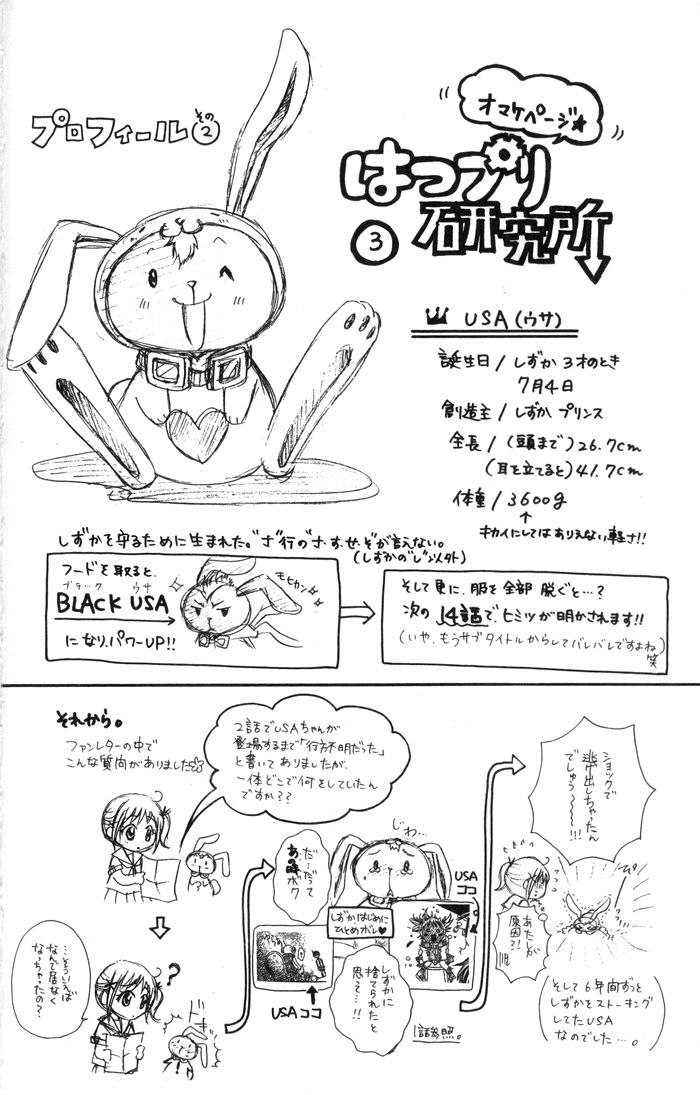 オマケページ★
はつプリ
研究所
③
プロフィールその②
USA(ウサ)
誕生日/しずか3才のとき
7月4日
創造主/しずかプリンス
全長/(頭まで)26.7cm
(耳を立てると)41.7cm
体重/3600g
↑
キカイにしてはありえない軽さ!!
しずかを守るために生まれた。"ざ"行の"ざ・ず・ぜ・ぞ"が言えない。
(しずかの"じ"以外)
フードを取ると、
ブラック ウサ
BLACK USA
になり、パワーUP!!
モヒカン
そして更に、服を全部脱ぐと…?
次の14話で、ヒミツが明かされます!!
(いや、もうサブタイトルからしてバレバレですよね)
笑
それから。
ファンレターの中で
こんな質問がありました☆
2話でUSAちゃんが
登場するまで「行方不明だった」
と書いてありましたが、
一体どこで何をしていたん
ですか??
…そういえば
なんで居なく
なっちゃたの?
?
ドキ
だ…だって
あの時ボク
じわ…
しずかはじめに
ひとめボレ♥
USA
ココ
USAココ
しずかに
捨てられたと
思って…!!
1話参照。
ショックで
逃げ出しちゃったん
でしゅう〜〜〜!!!
あたしが
原因?!
ぴー
そして6年間ずっと
しずかをストーキング
してたUSA
なのでした…。